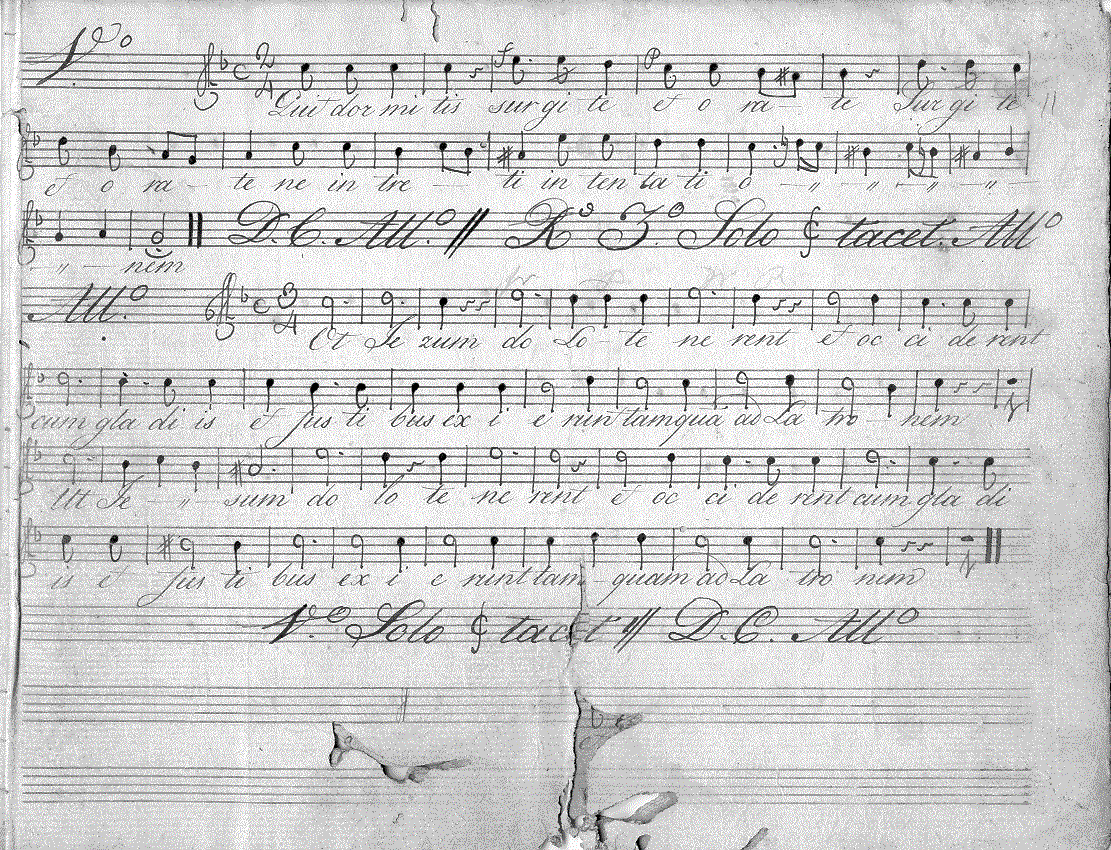 V.º
Quid dor mi tis sur gi te et o ra - te Sur gi te
et o ra - te ne in tre - ti in ten ta ti o - " - " - " - " -
- " - nem
D.C. All.º R.º 3.º Solo tacet. Allº
All.º
Ut Je zum do Lo - te ne rent et oc ci de rent
cum gla di is et fus ti bus ex i e runt tamquā ad La tro - nem
Ut Je - " - sum do lo te ne rent et oc ci de rent cum gla di
is et fus ti bus ex i e runt tam - quam ad La tro nem
V.º Solo tacet D.C. Allº